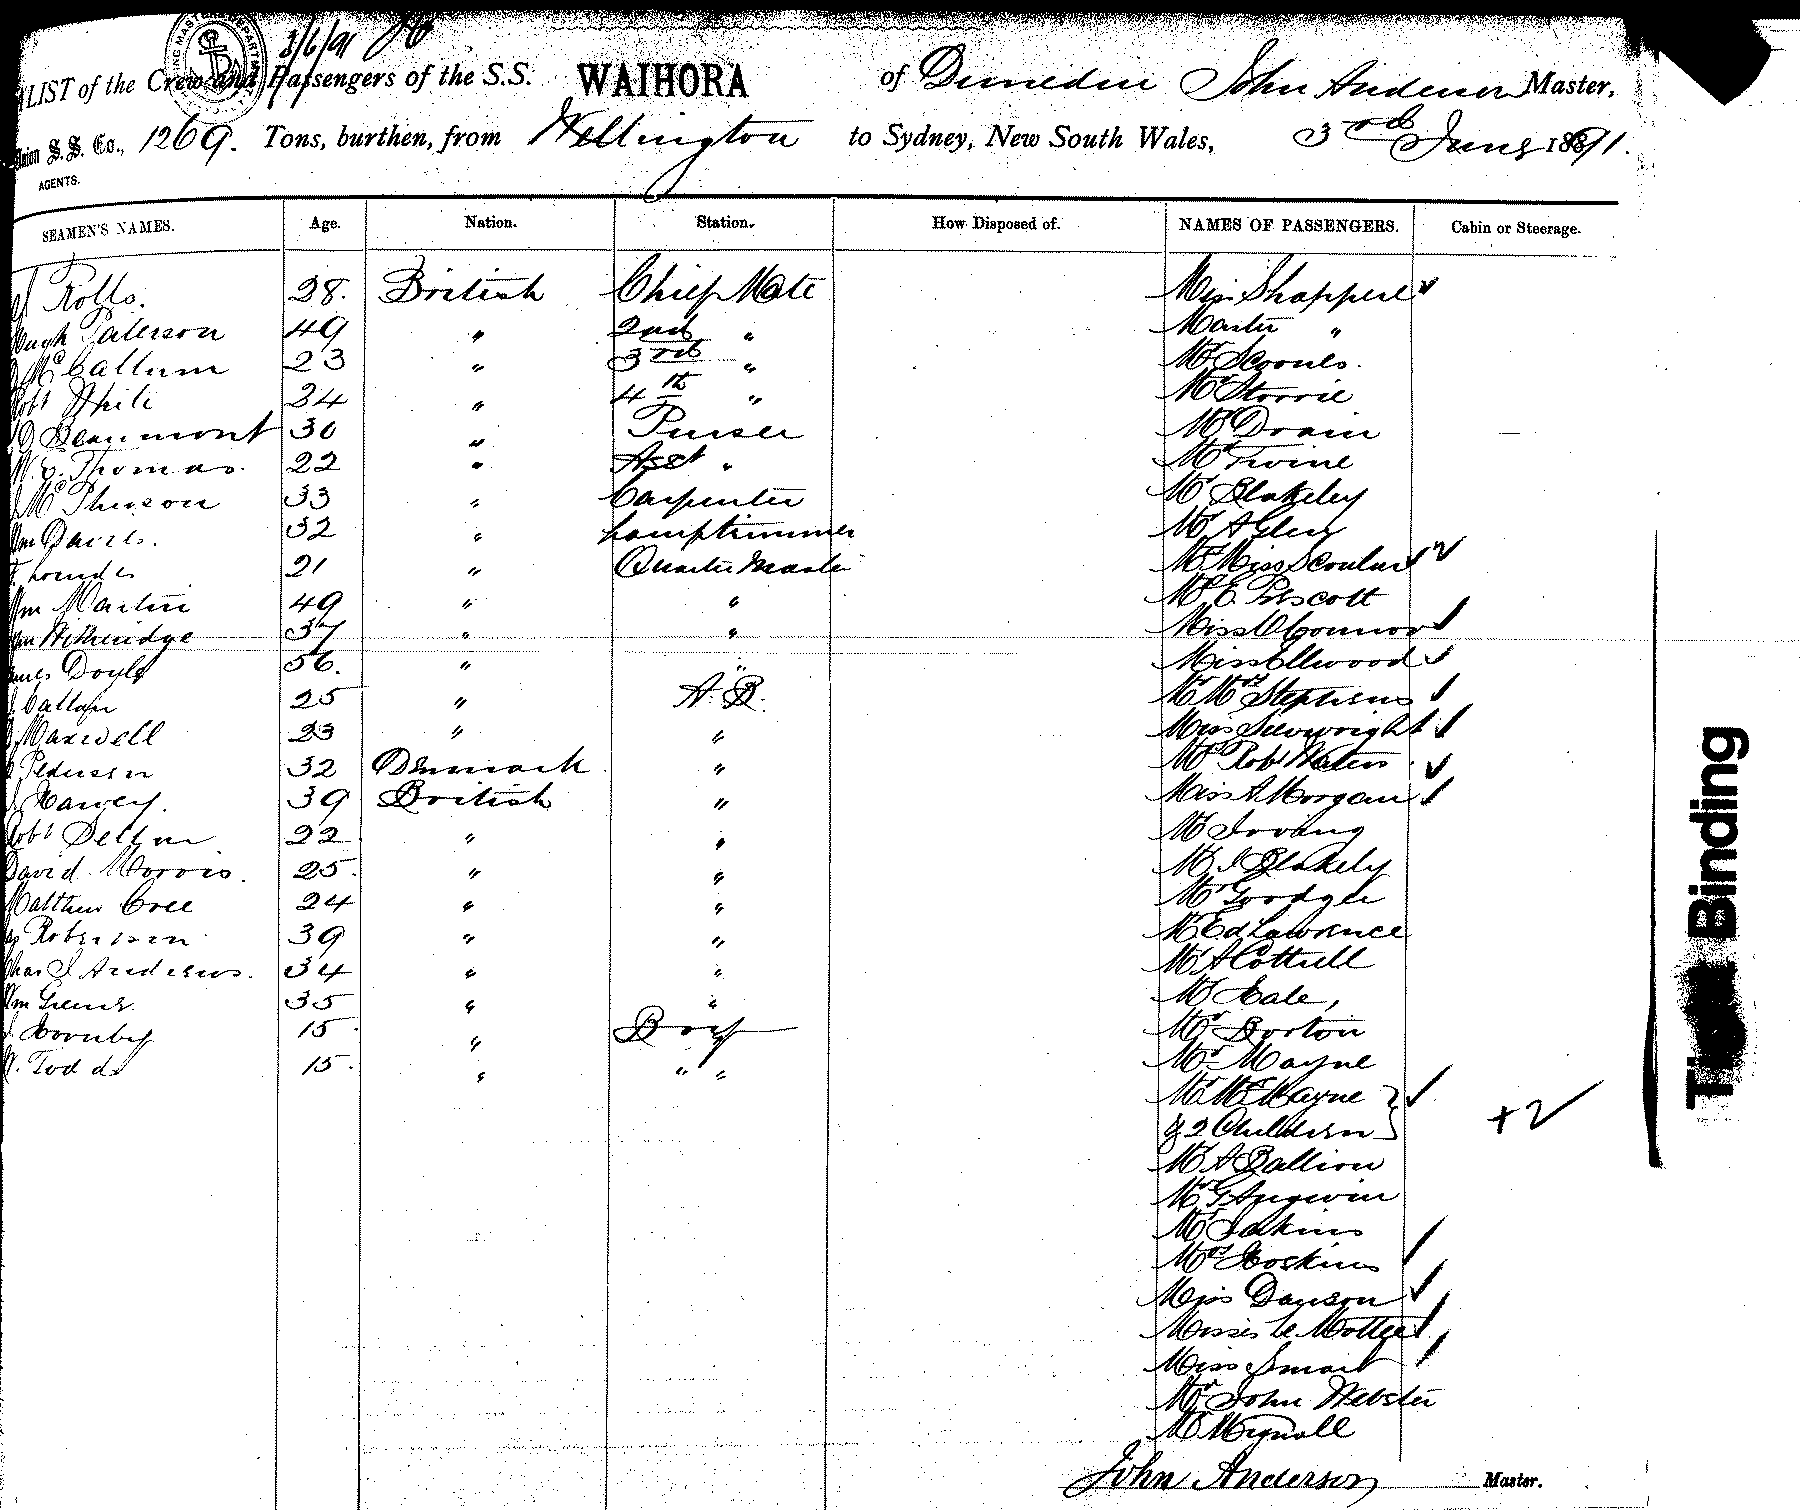 3/6/91
LIST of the Crew and Passengers of the S.S. WAIHORA of Dunedin John Anderson Master,
Union S. S. Co., 1269. Tons, burthen, from Wellington to Sydney, New South Wales, 3rd June 1891.
AGENTS.
SEAMEN'S NAMES. Age. Nation. Station. How Disposed of. NAMES OF PASSENGERS. Cabin or Steerage.
Rolls. 28. British Chief Mate Miss Shappere
Hugh Paterson 49 " 2nd " Master "
McCallum 23 " 3rd " Mr Scoones.
Robt White 24 " 4th " Mr Storrie
Beaumont 30 " Purser Mr Drain
W. G. Thomas. 22 " Asst " Mr Twine
McPherson 33 " Carpenter Mr Blakeley
Wm Davies. 32 " Lamptrimmer Mr A Glen
Lowndes 21 " Quarter Master Mr Miss Scoular
Wm Martin 49 " " Mr E. Prescott
Wm Witheridge 37 " " Miss O'Connor
James Doyle 56. " " Miss Ellwood
Callan 25 " A. B. Mr Mrs Stephens
Maxwell 23 " " Miss Sievwright
Pedersen 32 Denmark " Mr Robt Waters
Harvey. 39 British " Miss A Morgan
Robt 22 " " Mr Irving
David Morris. 25. " " Mr J Blakely
Matthew Cree 24 " " Mr Goodger
Robertson 39 " " Mr Ed Lawrence
Chas J Andrews. 34 " " Mr A Cottrell
Wm 35 " " Mr Hale,
Hornby 15 " Boy Mr Borton
Todd 15. " " " Mr Mayne
Mr McKayne }
& 2 Children } +2
Mr A Ballion
Mr G Angwin
Mr Jakins
Mrs Hoskins
Miss Dawson
Misses Le Mottee
Miss Smart
Mr John Webster
Mr Wignall
John Anderson Master.
Tight Binding